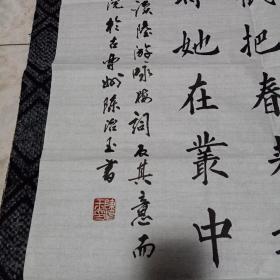 把春
她在叢中
讀陸游咏梅詞反其意而
於古
陳治玉書